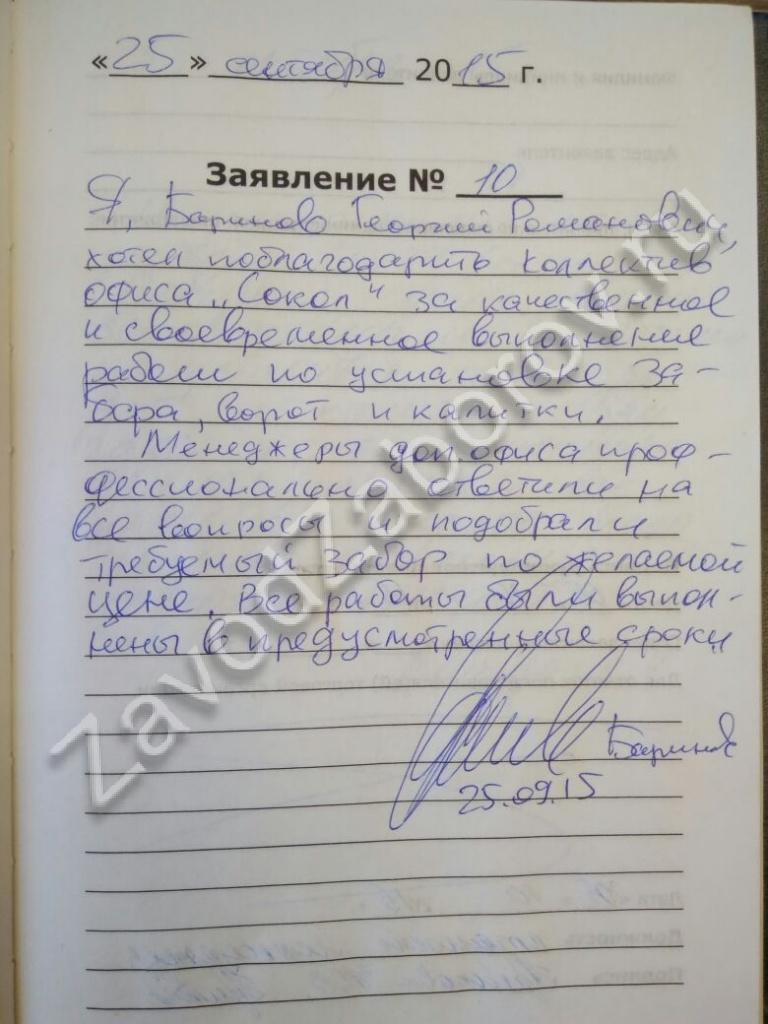 «25» сентября 2015 г.
Заявление № 10
Я, Баринов Георгий Романович,
хотел поблагодарить коллектив
офиса „Сокол" за качественное
и своевременное выполнение
работ по установке за-
бора, ворот и калитки.
Менеджеры доп. офиса проф-
фессионально ответили на
все вопросы и подобрали
требуемый забор по желаемой
цене. Все работы были выпол-
нены в предусмотренные сроки
Баринов
25.09.15
ZavodZaborov.ru